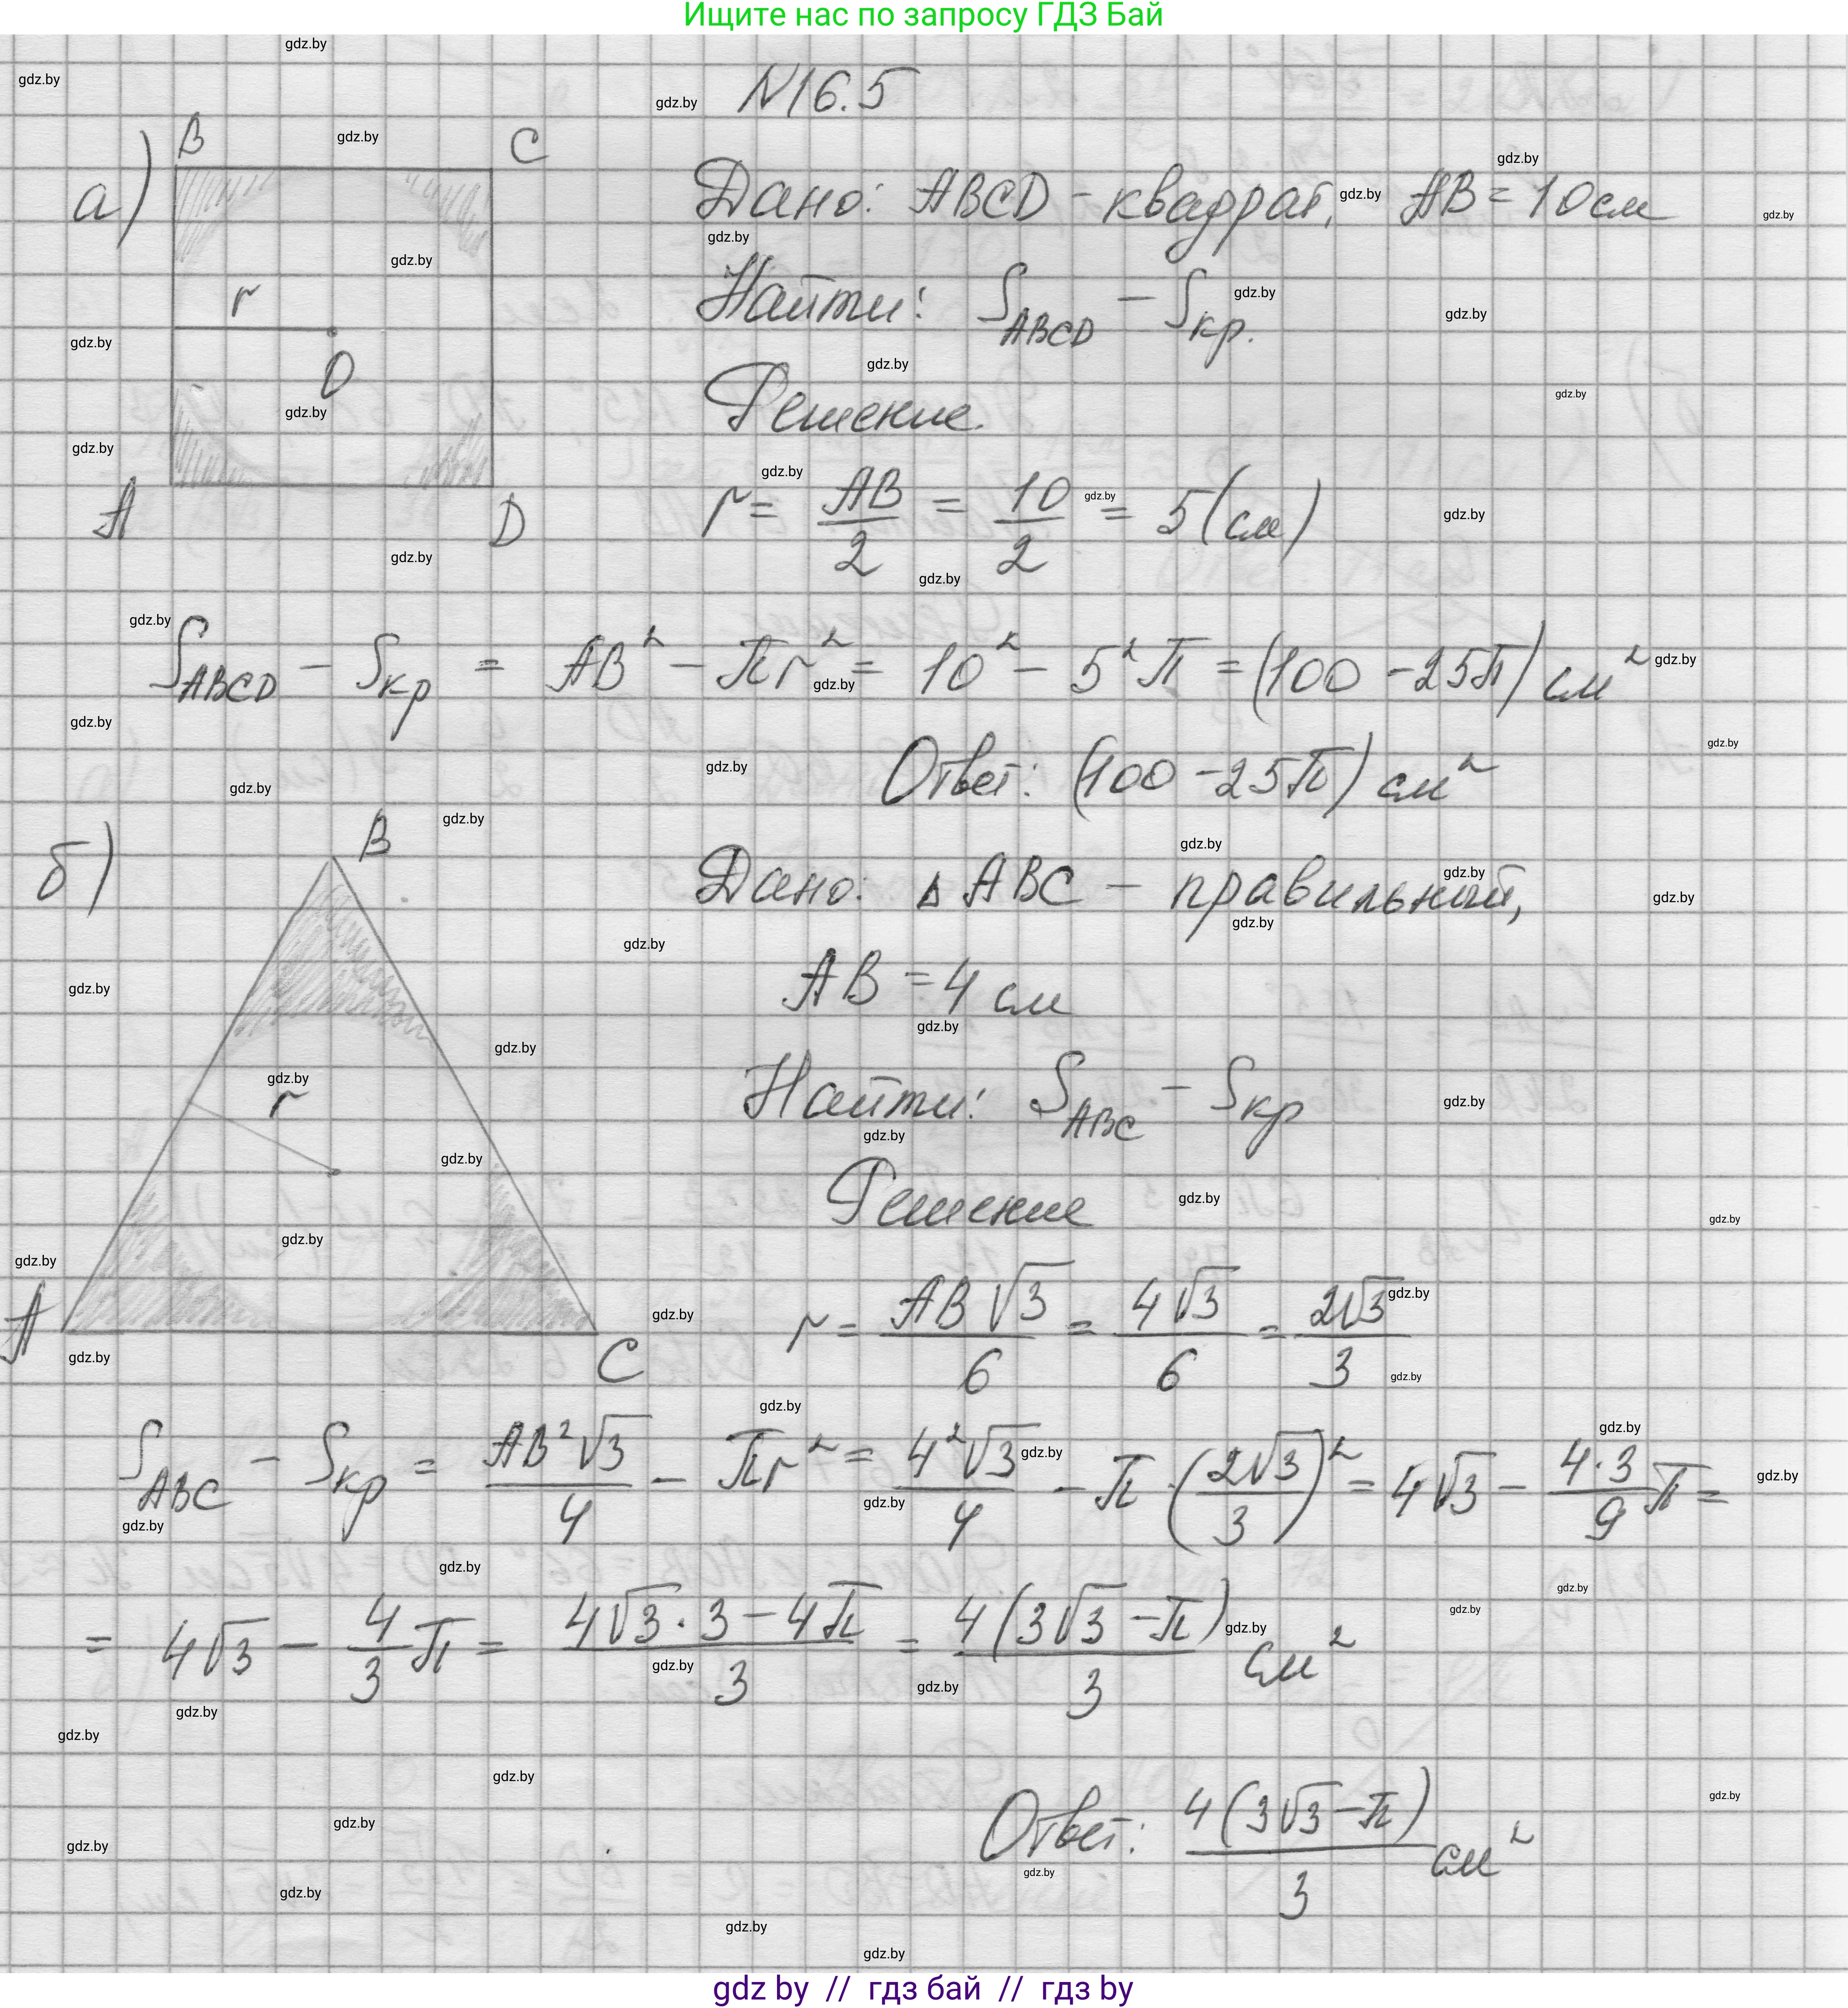 Ищите нас по запросу ГДЗ Бай
N16.5
а)
B C
Дано: ABCD - квадрат, AB = 10 см
Найти: S_ABCD - S_кр.
r
O
Решение.
A D
r = AB/2 = 10/2 = 5 (см)
S_ABCD - S_кр = AB² - πr² = 10² - 5²π = (100 - 25π) см²
Ответ: (100 - 25π) см²
б)
B
Дано: △ABC - правильный,
AB = 4 см
Найти: S_ABC - S_кр
r
Решение
A C
r = AB√3/6 = 4√3/6 = 2√3/3
S_ABC - S_кр = AB²√3/4 - πr² = 4²√3/4 - π·(2√3/3)² = 4√3 - 4·3/9 π =
= 4√3 - 4/3 π = (4√3·3 - 4π)/3 = 4(3√3 - π)/3 см²
Ответ: 4(3√3 - π)/3 см²
gdz by // гдз бай // гдз by
gdz.by